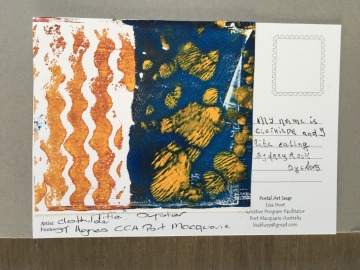 My name is
Clothilde and I
like eating
Sydney Rock
Oysters
Postal Art Swap
Lisa Hort
Creative Program Facilitator
Port Macquarie Australia
Artist: clothilde Oyster
From: ST Agnes CCA Port Macquarie